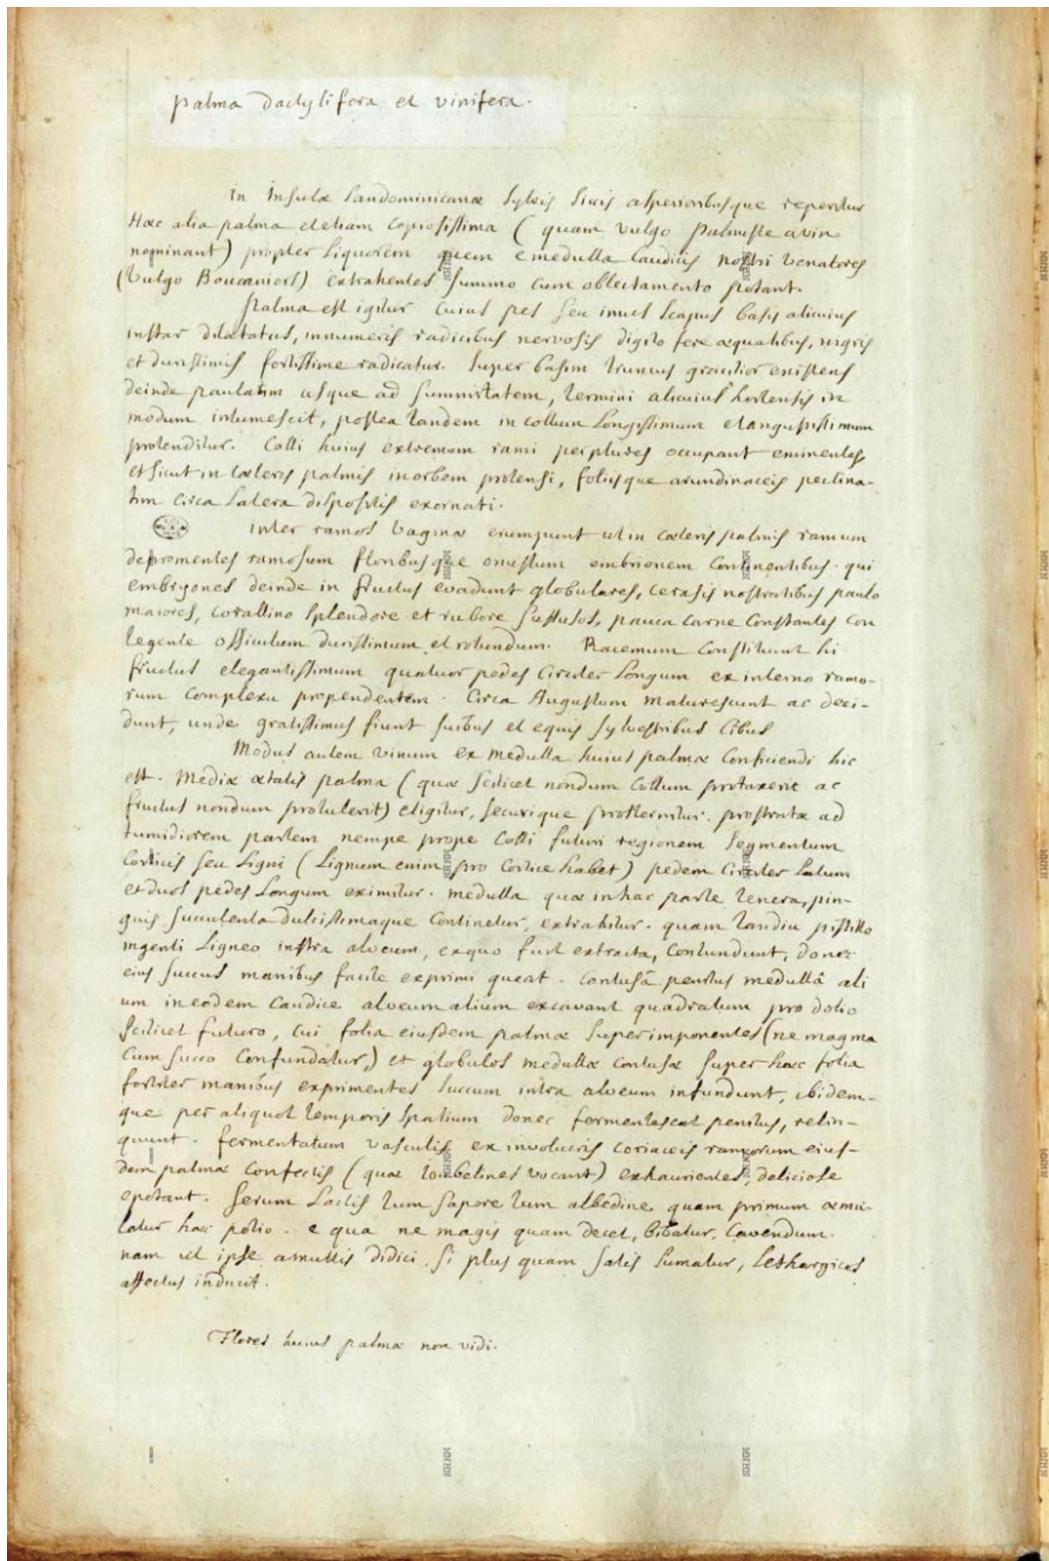 palma dactylifera et vinifera.
in Insulæ Sandominicanæ sylvis siccis asperioribusque reperitur
Hæc alia palma et etiam copiosissima ( quam vulgo Palmiste a vin
nominant ) propter Liquorem quem e medulla caudicis nostri venatores
(vulgo Boucaniers) extrahentes summo cum oblectamento potant.
Palma est igitur cuius pes seu imus scapus basis alicuius
instar dilatatus, innumeris radicibus nervosis digito fere æqualibus, nigris
et durissimis fortissime radicatur. super basim truncus gracilior existens
deinde paulatim usque ad summitatem, termini alicuius hortensis in
modum intumescit, postea tandem in collum Longissimum et angustissimum
protenditur. Colli huius extremum rami perplures occupant eminentes,
et sicut in cæteris palmis in orbem protensi, foliisque arundinaceis pectina-
tim circa Latera dispositis exornati.
inter ramos vaginæ erumpunt ut in cæteris palmis ramum
depromentes ramosum floribusque onustum embrionem continentibus. qui
embryones deinde in fructus evadunt globulares, cerasis nostratibus paulo
maiores, corallino splendore et rubore suffusos, pauca carne constantes con
tegente officulum durissimum et rotundum. Racemum constituunt hi
fructus elegantissimum quatuor pedes circiter Longum ex interno ramo-
rum complexu propendentem. Circa Augustum maturescunt ac deci-
dunt, unde gratissimus fiunt suibus et equis sylvestribus cibus
Modus autem vinum ex medulla huius palmæ conficiendi hic
est. Mediæ ætatis palma ( quæ scilicet nondum collum protaxerit ac
fructus nondum protulerit) eligitur, securique prosternitur. prostratæ ad
tumidiorem partem nempe prope colli futuri regionem segmentum
corticis seu Ligni ( Lignum enim pro cortice habet ) pedem circiter Latum
et duos pedes Longum eximitur. medulla quæ in hac parte tenera, pin-
guis succulenta dulcissimaque continetur, extrahitur. quam tandiu pistillo
ingenti Ligneo intra alveum, ex quo fuit extracta, contundunt, donec
eius succus manibus facile exprimi queat. contusâ penitus medullâ ali
um in eodem caudice alveum alium excavant quadratum pro dolio
scilicet futuro, cui folia eiusdem palmæ superimponentes (ne magma
cum succo confundatur,) et globulos medullæ contusæ super hæc folia
fortiter manibus exprimentes succum intra alveum infundunt, ibidem-
que per aliquot temporis spatium donec fermentescat penitus, relin-
quunt. fermentatum vasculis ex involucris coriaceis ramorum eius-
dem palmæ confectis ( quæ Tombelines vocant ) exhaurientes, deliciose
epotant. serum Lactis tum sapore tum albedine quam primum æmu-
latur hæc potio. e qua ne magis quam decet, bibatur, cavendum.
nam ut ipse a multis didici, si plus quam satis sumatur, Lethargicos
affectus inducit.
Flores huius palmæ non vidi.